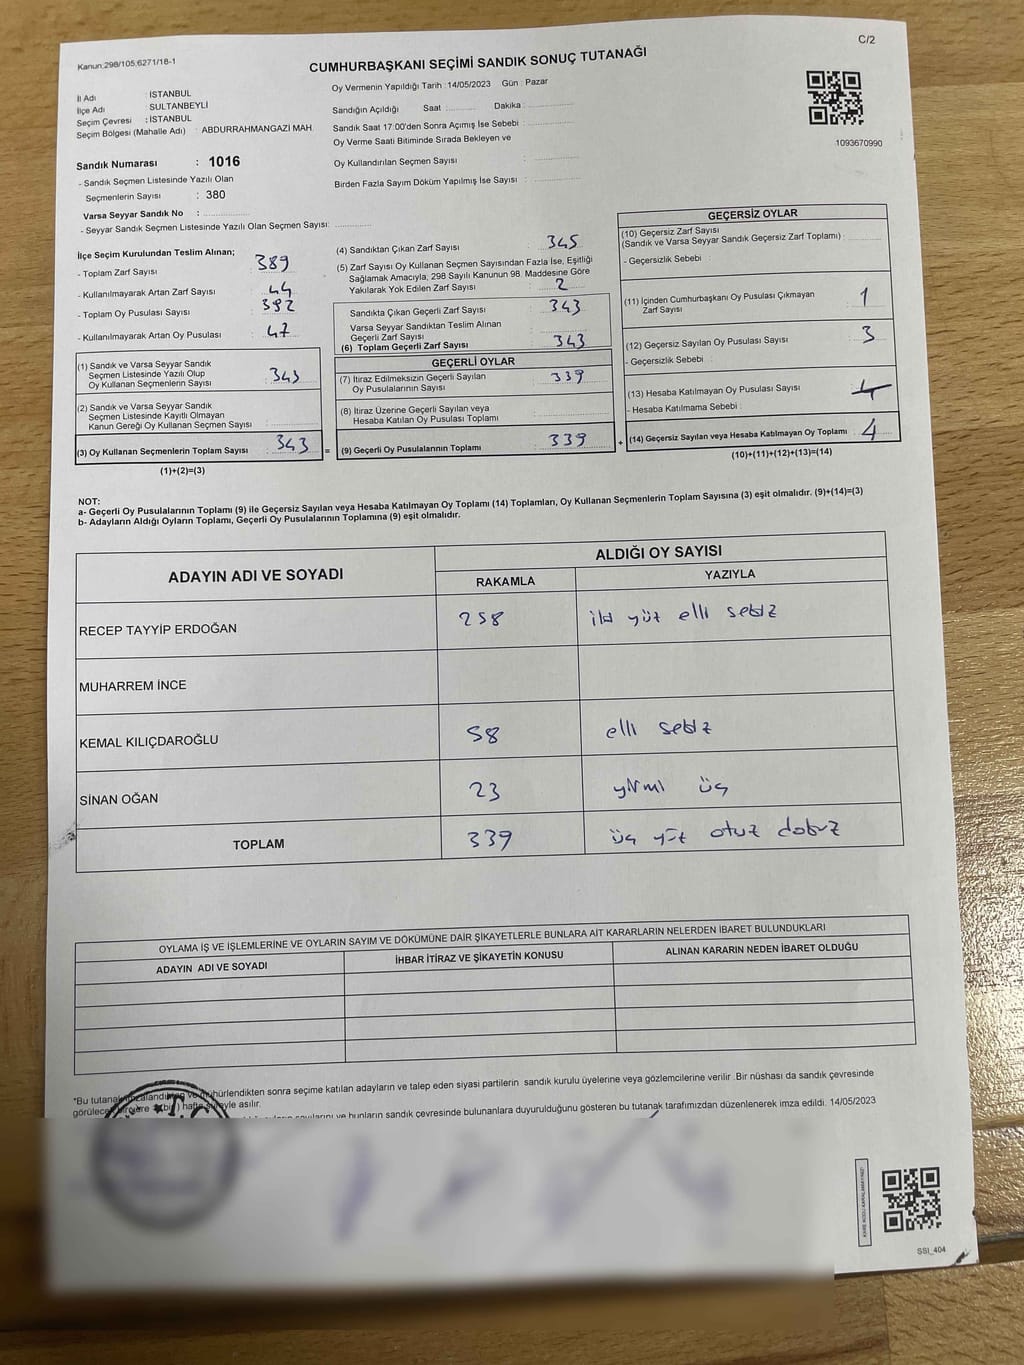 C/2
Kanun:298/105;6271/18-1
CUMHURBAŞKANI SEÇİMİ SANDIK SONUÇ TUTANAĞI
İl Adı : İSTANBUL
İlçe Adı : SULTANBEYLİ
Seçim Çevresi : İSTANBUL
Seçim Bölgesi (Mahalle Adı) : ABDURRAHMANGAZİ MAH.
Sandık Numarası : 1016
- Sandık Seçmen Listesinde Yazılı Olan
Seçmenlerin Sayısı : 380
Varsa Seyyar Sandık No :
- Seyyar Sandık Seçmen Listesinde Yazılı Olan Seçmen Sayısı:
Oy Vermenin Yapıldığı Tarih : 14/05/2023 Gün : Pazar
Sandığın Açıldığı Saat : Dakika :
Sandık Saat 17:00'den Sonra Açımış İse Sebebi :
Oy Verme Saati Bitiminde Sırada Bekleyen ve
Oy Kullandırılan Seçmen Sayısı :
Birden Fazla Sayım Döküm Yapılmış İse Sayısı :
1093670990
İlçe Seçim Kurulundan Teslim Alınan;
- Toplam Zarf Sayısı : 389
- Kullanılmayarak Artan Zarf Sayısı : 44
- Toplam Oy Pusulası Sayısı : 392
- Kullanılmayarak Artan Oy Pusulası : 47
(1) Sandık ve Varsa Seyyar Sandık
Seçmen Listesinde Yazılı Olup
Oy Kullanan Seçmenlerin Sayısı : 343
(2) Sandık ve Varsa Seyyar Sandık
Seçmen Listesinde Kayıtlı Olmayan
Kanun Gereği Oy Kullanan Seçmen Sayısı :
(3) Oy Kullanan Seçmenlerin Toplam Sayısı : 343
(1)+(2)=(3)
(4) Sandıktan Çıkan Zarf Sayısı : 345
(5) Zarf Sayısı Oy Kullanan Seçmen Sayısından Fazla İse, Eşitliği
Sağlamak Amacıyla, 298 Sayılı Kanunun 98. Maddesine Göre
Yakılarak Yok Edilen Zarf Sayısı : 2
Sandıkta Çıkan Geçerli Zarf Sayısı : 343
Varsa Seyyar Sandıktan Teslim Alınan
Geçerli Zarf Sayısı :
(6) Toplam Geçerli Zarf Sayısı : 343
GEÇERLİ OYLAR
(7) İtiraz Edilmeksizin Geçerli Sayılan
Oy Pusulalarının Sayısı : 339
(8) İtiraz Üzerine Geçerli Sayılan veya
Hesaba Katılan Oy Pusulası Toplamı :
= (9) Geçerli Oy Pusulalarının Toplamı : 339
GEÇERSİZ OYLAR
(10) Geçersiz Zarf Sayısı
(Sandık ve Varsa Seyyar Sandık Geçersiz Zarf Toplamı) :
- Geçersizlik Sebebi :
(11) İçinden Cumhurbaşkanı Oy Pusulası Çıkmayan
Zarf Sayısı : 1
(12) Geçersiz Sayılan Oy Pusulası Sayısı : 3
- Geçersizlik Sebebi :
(13) Hesaba Katılmayan Oy Pusulası Sayısı : 4
- Hesaba Katılmama Sebebi :
+ (14) Geçersiz Sayılan veya Hesaba Katılmayan Oy Toplamı : 4
(10)+(11)+(12)+(13)=(14)
NOT:
a- Geçerli Oy Pusulalarının Toplamı (9) ile Geçersiz Sayılan veya Hesaba Katılmayan Oy Toplamı (14) Toplamları, Oy Kullanan Seçmenlerin Toplam Sayısına (3) eşit olmalıdır. (9)+(14)=(3)
b- Adayların Aldığı Oyların Toplamı, Geçerli Oy Pusulalarının Toplamına (9) eşit olmalıdır.
ADAYIN ADI VE SOYADI ALDIĞI OY SAYISI
RAKAMLA YAZIYLA
RECEP TAYYİP ERDOĞAN 258 iki yüz elli sekiz
MUHARREM İNCE
KEMAL KILIÇDAROĞLU 58 elli sekiz
SİNAN OĞAN 23 yirmi üç
TOPLAM 339 üç yüz otuz dokuz
OYLAMA İŞ VE İŞLEMLERİNE VE OYLARIN SAYIM VE DÖKÜMÜNE DAİR ŞİKAYETLERLE BUNLARA AİT KARARLARIN NELERDEN İBARET BULUNDUKLARI
ADAYIN ADI VE SOYADI İHBAR İTİRAZ VE ŞİKAYETİN KONUSU ALINAN KARARIN NEDEN İBARET OLDUĞU
*Bu tutanak imzalandıktan ve mühürlendikten sonra seçime katılan adayların ve talep eden siyasi partilerin sandık kurulu üyelerine veya gözlemcilerine verilir .Bir nüshası da sandık çevresinde
görülecek bir yere (bir) hafta süreyle asılır.
sayılarını ve bunların sandık çevresinde bulunanlara duyurulduğunu gösteren bu tutanak tarafımızdan düzenlenerek imza edildi. 14/05/2023
T.C
SSI_404